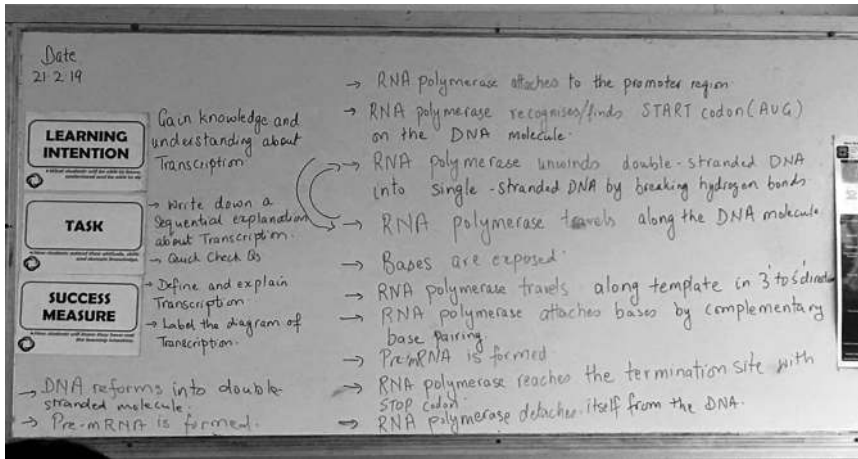 Date
21·2·19
LEARNING
INTENTION
Gain knowledge and
understanding about
Transcription
TASK
→ Write down a
sequential explanation
about Transcription.
→ Quick Check Qs
SUCCESS
MEASURE
→ Define and explain
Transcription.
→ Label the diagram of
Transcription.
→ DNA reforms into double-
stranded molecule.
→ Pre-mRNA is formed.
→ RNA polymerase attaches to the promoter region
→ RNA polymerase recognises/finds START codon (AUG)
on the DNA molecule.
→ RNA polymerase unwinds double-stranded DNA
into single-stranded DNA by breaking hydrogen bonds
→ RNA polymerase travels along the DNA molecule
→ Bases are exposed.
→ RNA polymerase travels along template in 3' to 5' direction
→ RNA polymerase attaches bases by complementary
base pairing.
→ Pre-mRNA is formed
→ RNA polymerase reaches the termination site with
STOP codon.
→ RNA polymerase detaches itself from the DNA.